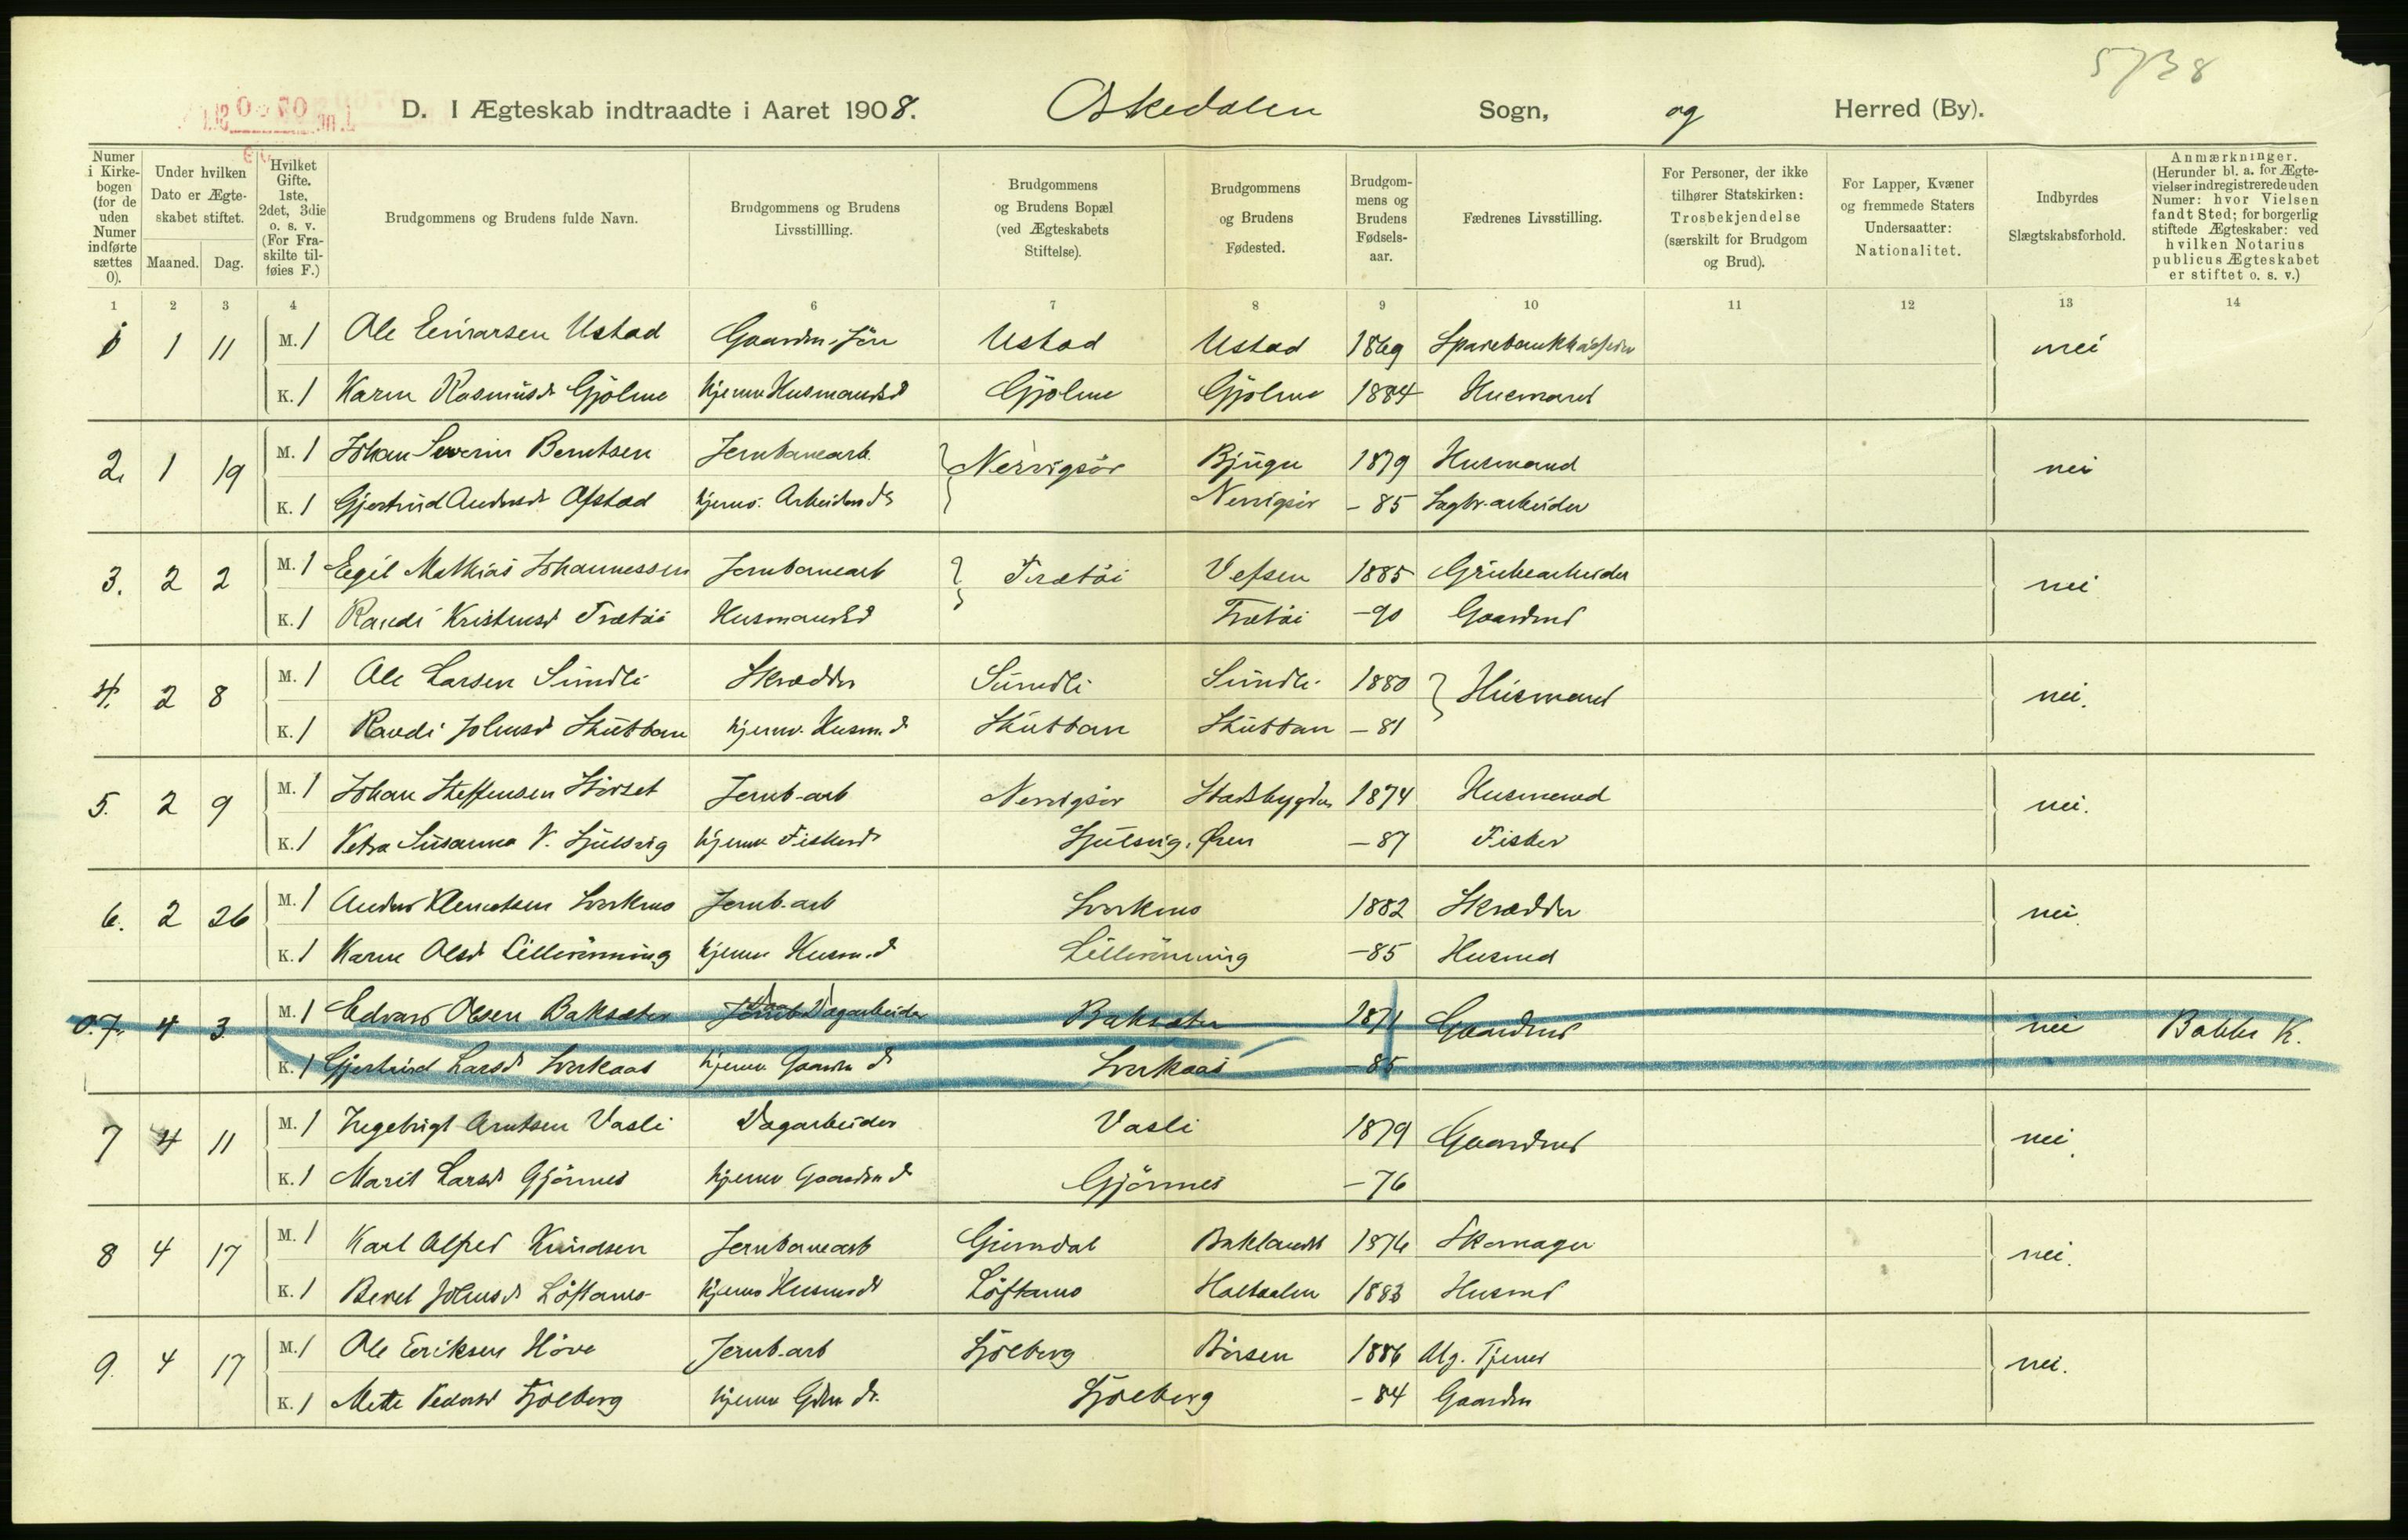 5738
D. I Ægteskab indtraadte i Aaret 1908. Oskedalen Sogn, og Herred (By).
Numer i Kirkebogen (for de uden Numer indførte sættes 0).
Under hvilken Dato er Ægteskabet stiftet.
Maaned. Dag.
Hvilket Gifte. 1ste, 2det, 3die o. s. v. (For Fraskilte tilføies F.)
Brudgommens og Brudens fulde Navn.
Brudgommens og Brudens Livsstillling.
Brudgommens og Brudens Bopæl (ved Ægteskabets Stiftelse).
Brudgommens og Brudens Fødested.
Brudgommens og Brudens Fødselsaar.
Fædrenes Livsstilling.
For Personer, der ikke tilhører Statskirken: Trosbekjendelse (særskilt for Brudgom og Brud).
For Lapper, Kvæner og fremmede Staters Undersaatter: Nationalitet.
Indbyrdes Slægtskabsforhold.
Anmærkninger. (Herunder bl. a. for Ægtevielser indregistrerede uden Numer: hvor Vielsen fandt Sted; for borgerlig stiftede Ægteskaber: ved hvilken Notarius publicus Ægteskabet er stiftet o. s. v.)
1 2 3 4 6 7 8 9 10 11 12 13 14
1 1 11 M. 1 Ole Einarsen Ustad Gaardm. søn Ustad Ustad 1869 nei
K. 1 Karen Rasmusd. Gjølme hjemv Husmandsd Gjølme Gjølme 1884 Husmand
2. 1 19 M. 1 Johan Severin Berntsen Jernbanearb. Nervigsør Bjugn 1879 Husmand nei
K. 1 Gjertrud Andersd. Ofstad hjemv. Arbeiderds Nervigsør - 85 Sagbr. arbeider
3. 2 2 M. 1 Egil Mathias Johannessen Jernbanearb Trætøi Vefsen 1885 Grubearbeider nei
K. 1 Randi Kristensd Trætøi Husmandsd Trætøi - 90 Gaardmd
4. 2 8 M. 1 Ole Larsen Sundli Skrædder Sundli Sundli 1880 Husmand nei.
K. 1 Randi Johnsd Skuttan hjemv. Husm. d Skuttan Skuttan - 81
5. 2 9 M. 1 Johan Steffensen Hørset Jernb-arb Nervigsør Stadsbygden 1874 Husmand nei.
K. 1 Petra Susanna V. Sjulsvig hjemv Fiskerd Sjulsvig, Øren - 87 Fisker
6. 2 26 M. 1 Anders Klemetsen Svorkmo Jernb-arb Svorkmo 1882 Skrædder nei.
K. 1 Karen Olsd Lillerønning hjemv Husm.d Lillerønning - 85 Husmd
0.7. 4 3 M. 1 Edvard Olsen Baksæter Jernb Dagarbeider Baksæter 1871 Gaardmd nei K.
K. 1 Gjertrud Larsd Svorkaas hjemv Gaardm d Svorkaas - 85
7 4 11 M. 1 Ingebrigt Arntsen Vasli Dagarbeider Vasli 1879 Gaardmd nei.
K. 1 Marit Larsd Gjønnes hjemv Gaardm d Gjønnes - 76
8 4 17 M. 1 Karl Alfred Knudsen Jernbanearb Gumdal Baklandet 1876 Skomager nei.
K. 1 Beret Johnsd Løftamo hjemv Husmds Løftamo Holtaalen 1883 Husmd
9. 4 17 M. 1 Ole Eriksen Hove Jernb-arb Sjølberg Børsen 1886 Alg. Tjener nei.
K. 1 Mette Pedersd Sjølberg hjemv Gdm d. Sjølberg - 84 Gaardm